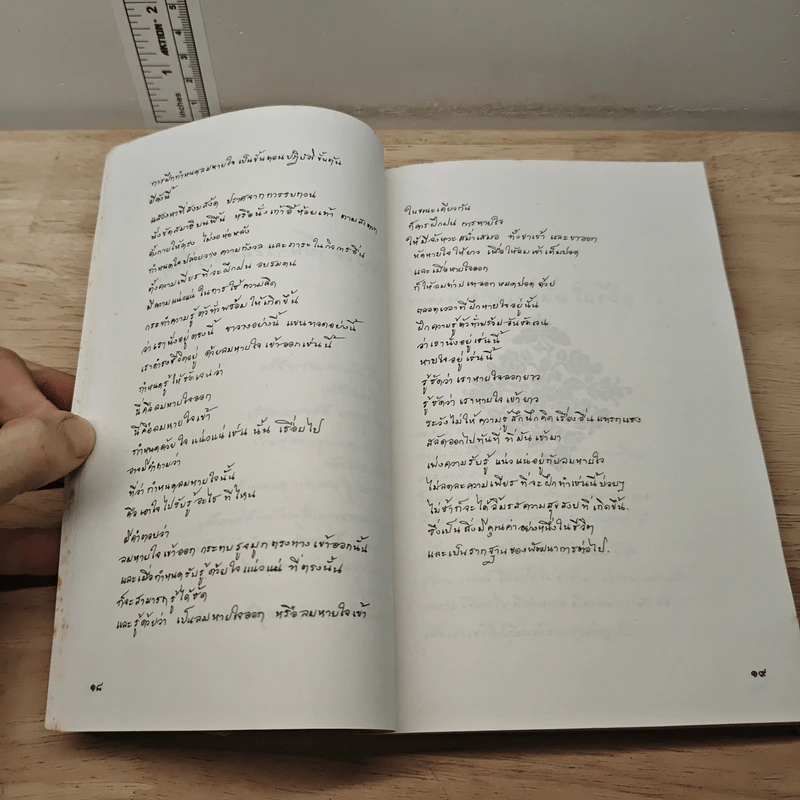 การฝึกกำหนดลมหายใจ เป็นขั้นตอน ปฏิบัติ ขั้นต้น
มีดังนี้
แสวงหาที่สงบสงัด ปราศจากการรบกวน
นั่งขัดสมาธิบนพื้น หรือนั่งเก้าอี้ ห้อยเท้า ตามสะดวก
ตั้งกายให้ตรง ไม่งอหลัง
กำหนดใจปล่อยวาง ความกังวล และภาระ ในกิจการอื่น
ตั้งความเพียร ที่จะฝึกฝน อบรมตน
มีความแน่วแน่ ในการใช้ ความคิด
กระทำความรู้ตัวทั่วพร้อม ให้เกิดขึ้น
ว่าเรานั่งอยู่ ตรงนี้ ขาวางอย่างนี้ แขนทอดอย่างนี้
เราดำรงชีวิตอยู่ ด้วยลมหายใจ เข้าออกเช่นนี้
กำหนดรู้ ให้ชัดเจนว่า
นี้คือลมหายใจออก
นี้คือลมหายใจเข้า
กำหนดด้วยใจ แน่วแน่ เช่นนั้น เรื่อยไป
อาจมีคำถามว่า
ที่ว่า กำหนดลมหายใจนั้น
คือเอาใจไปรับรู้อะไร ที่ไหน
มีคำตอบว่า
ลมหายใจเข้าออก กระทบรูจมูก ตรงทางเข้าออกนั้น
และเมื่อกำหนดรับรู้ด้วยใจ แน่วแน่ ที่ตรงนั้น
ก็จะสามารถรู้ได้ชัด
และรู้ด้วยว่า เป็นลมหายใจออก หรือลมหายใจเข้า
๑๘
ในขณะเดียวกัน
ก็ควรฝึกฝน การหายใจ
ให้มีจังหวะสม่ำเสมอ ทั้งขาเข้า และขาออก
หัดหายใจให้ยาว เพื่อให้ลมเข้าเต็มปอด
และเมื่อหายใจออก
ก็ให้ลมถ่ายเทออกหมดปอด ด้วย
ตลอดเวลาที่ฝึกหายใจอยู่นั้น
ฝึกความรู้ตัวทั่วพร้อม ชัดเจน
ว่าเรานั่งอยู่เช่นนี้
หายใจอยู่เช่นนี้
รู้ชัดว่า เราหายใจออกยาว
รู้ชัดว่า เราหายใจเข้ายาว
ระวังไม่ให้ ความรู้สึกนึกคิด เรื่องอื่น แทรกแซง
สลัดออกไปทันที ที่มันเข้ามา
เพ่งความรับรู้ แน่วแน่อยู่กับลมหายใจ
ไม่ลดละความเพียร ที่จะฝึกทำเช่นนี้บ่อยๆ
ไม่ช้าก็จะได้ลิ้มรสความสุขสงบที่เกิดขึ้น.
ซึ่งเป็นสิ่งมีคุณค่าอย่างหนึ่งในชีวิต
และเป็นรากฐานของพัฒนาการต่อไป.
๑๙
inches
1
2
AKTION